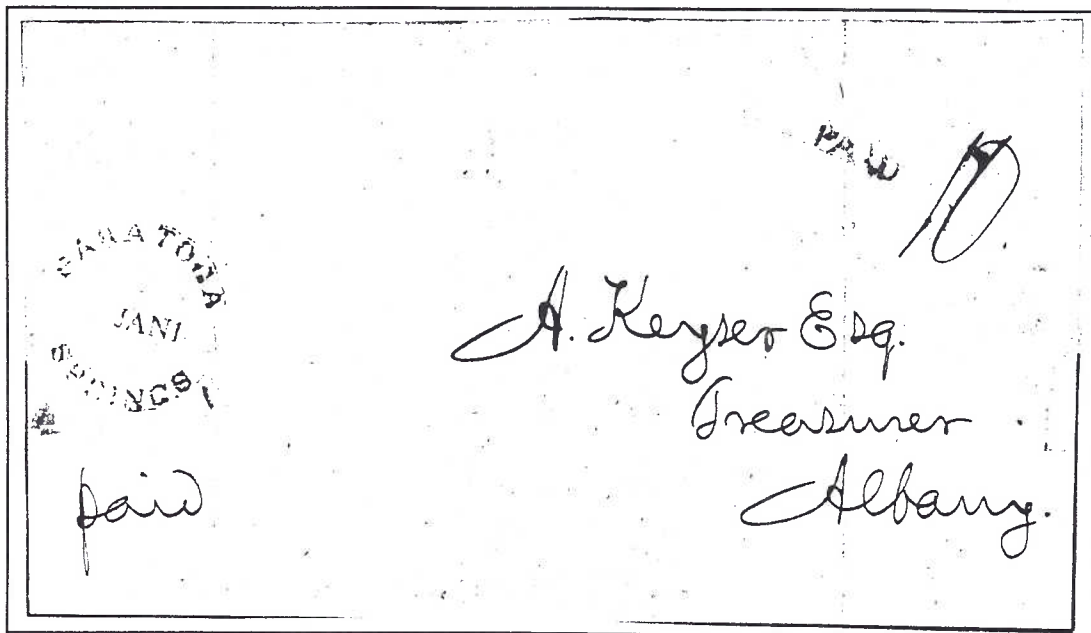 PAID
10.
SARATOGA
JAN 1
SPRINGS
A. Keyser Esq.
Treasurer
Albany.
paid